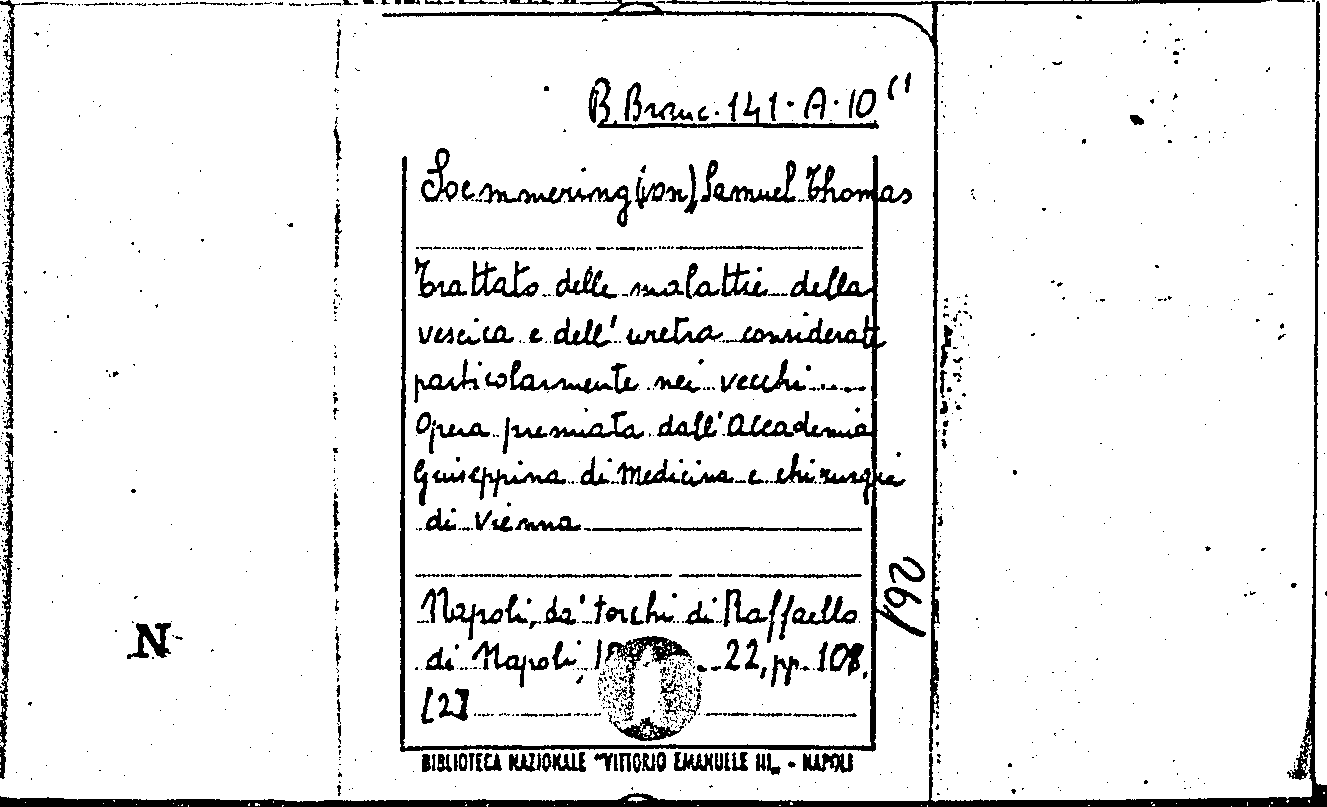 B. Branc. 141. A. 10 (1
Soemmering (von), Samuel Thomas
Trattato delle malattie della
vescica e dell' uretra considerate
particolarmente nei vecchi.....
Opera premiata dall' Accademia
Giuseppina di Medicina e chirurgia
di Vienna
Napoli, da' torchi di Raffaello
di Napoli, 22, pp. 108,
[2]
192
N
BIBLIOTECA NAZIONALE "VITTORIO EMANUELE III„ - NAPOLI